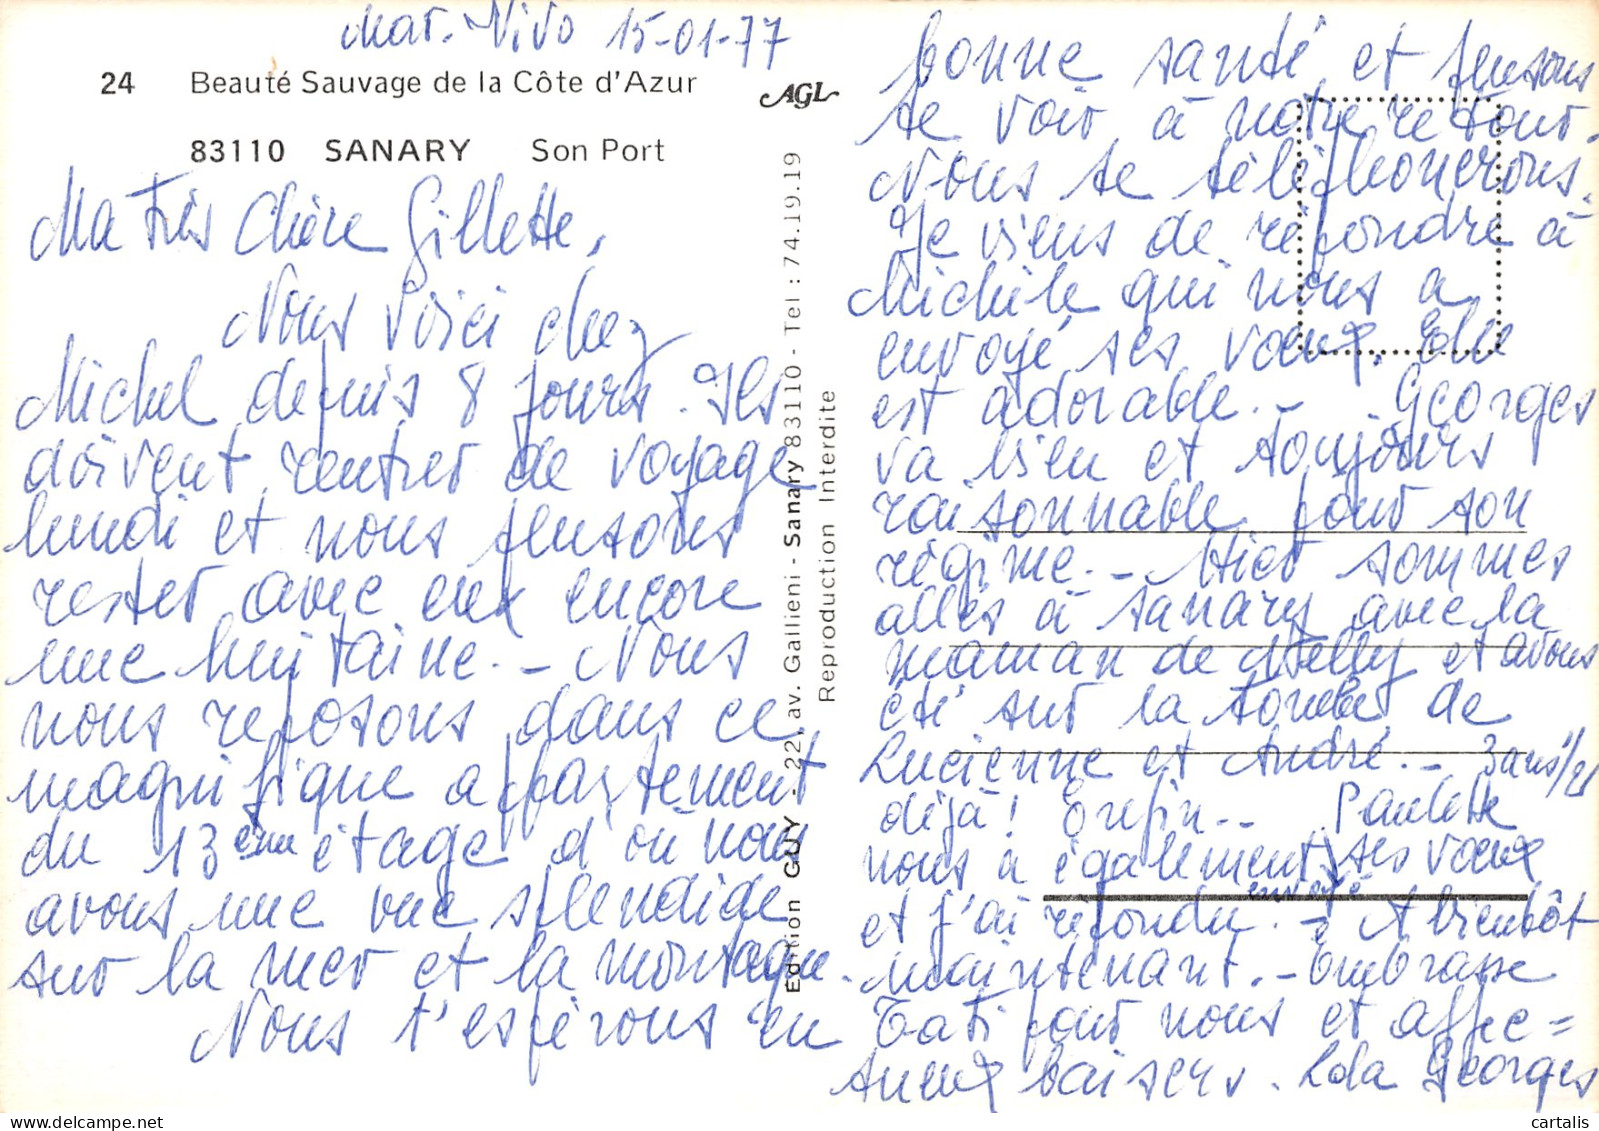 Mar. Vivo 15-01-77
24 Beauté Sauvage de la Côte d'Azur
AGL
83110 SANARY Son Port
Ma Très Chère Gillette,
Nous voici chez
Michel depuis 8 jours. Ils
doivent rentrer de voyage
lundi et nous pensons
rester avec eux encore
une huitaine. - Nous
nous reposons dans ce
magnifique appartement
du 13ème étage d'où nous
avons une vue splendide
sur la mer et la montagne.
Nous t'espérons en
Edition GUY - 22, av. Gallieni - Sanary 83110 - Tel : 74.19.19
Reproduction Interdite
bonne santé, et pensons
te voir à notre retour.
Nous te téléphonerons.
Je viens de répondre à
Michèle qui nous a
envoyé ses vœux. Elle
est adorable. - Georges
va bien et toujours
raisonnable pour son
régime. - Hier sommes
allés à Sanary avec la
maman de Nelly et avons
été sur la tombe de
Lucienne et André. - 3 ans 1/2
déjà ! Enfin.. Paulette
nous a également ses vœux
envoyé
et j'ai répondu. - A bientôt
maintenant. - Embrasse
Tati pour nous et affec=
tueux baisers. Lola Georges
cartalis